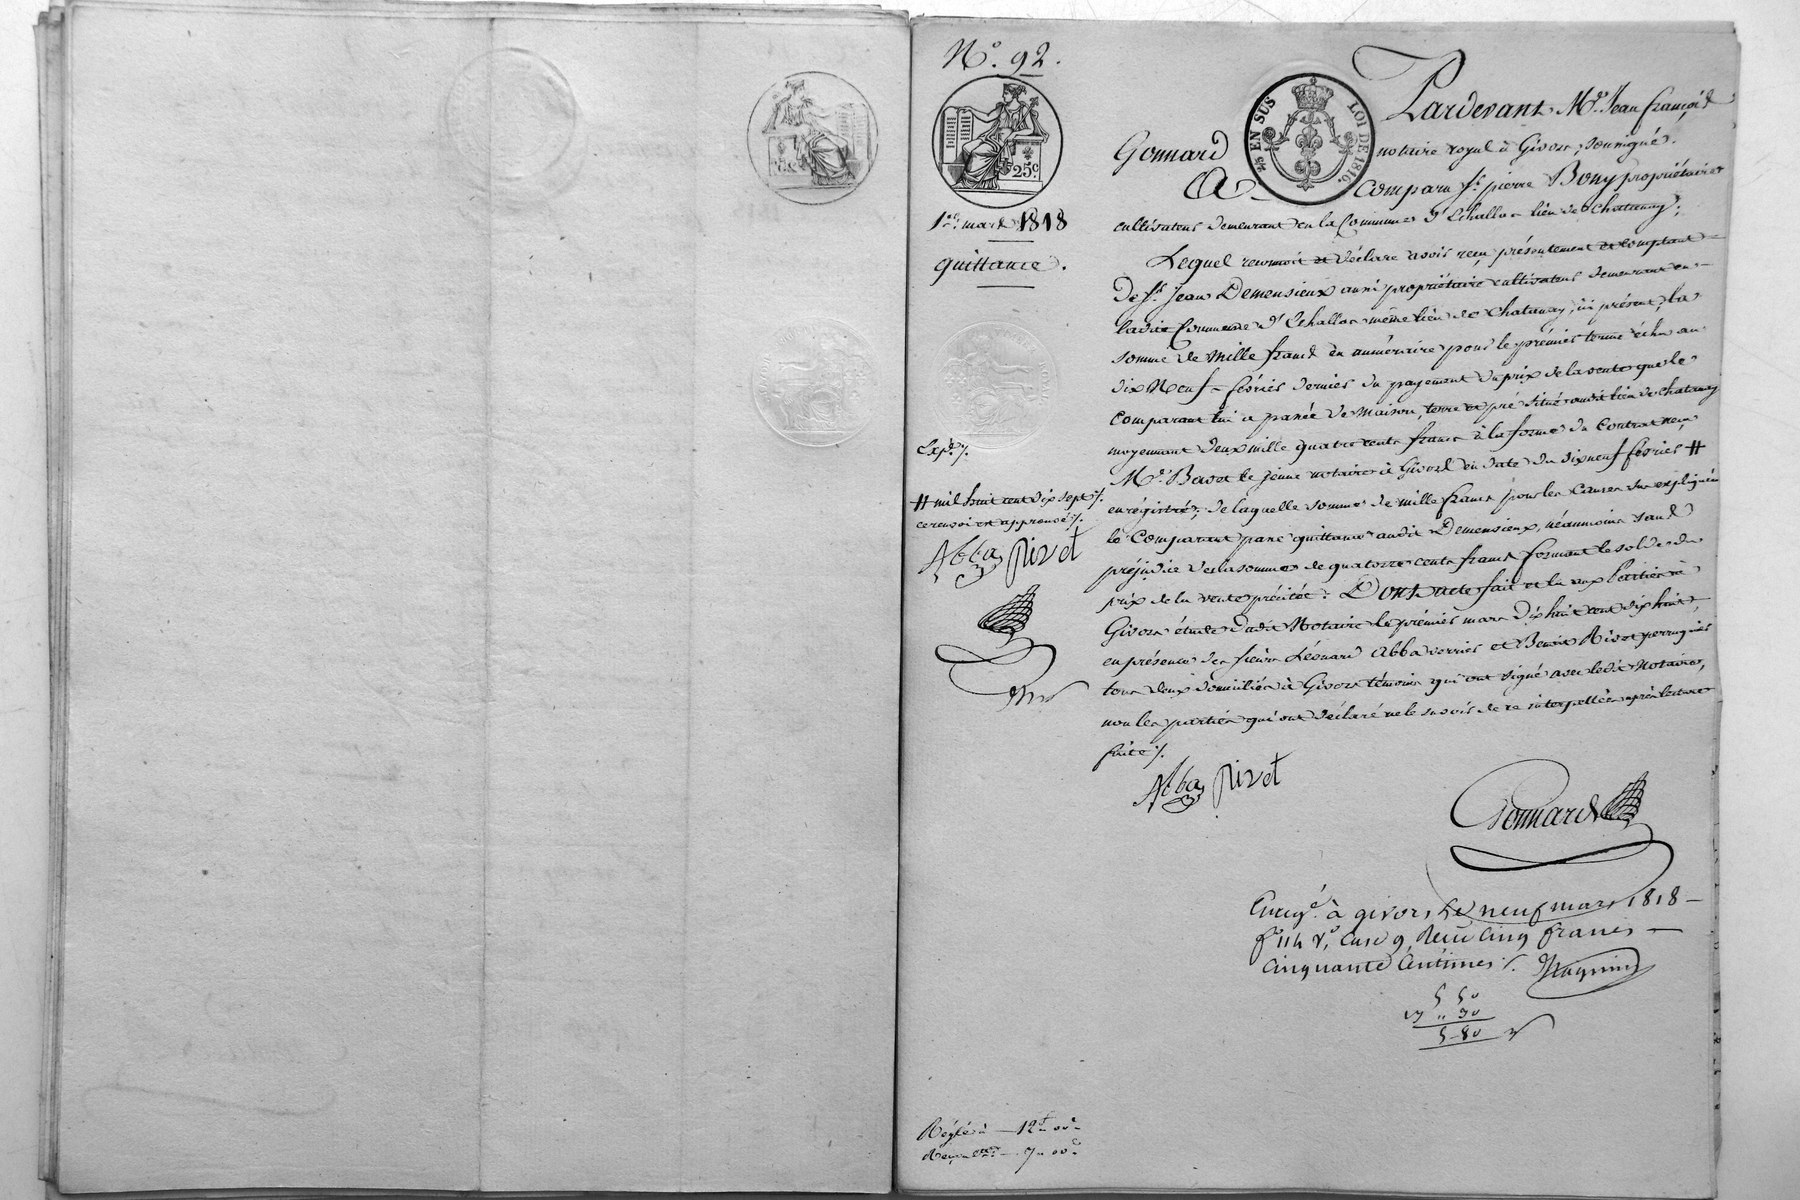 N.° 92.
25c
25c
EN SUS LOI DE 1816.
1.er mars 1818
quittance.
Pardevant M.e Jean françois
Gonnard notaire royal à Givors, soussigné.
A Comparu s.r pierre Bony propriétaire
cultivateur demeurant en la Commune d'Echallas lieu de Chatanay;
Lequel reconnoit et déclare avoir reçu présentement et comptant
De s.r Jean Demensieux aussi propriétaire cultivateur demeurant en
ladite Commune d'Echallas même lieu de Chatanay, ici présent, la
somme de Mille francs en numéraire pour le prémier terme échu au
dix Neuf février dernier du payement du prix de la vente que le
Comparant lui a passée de Maison, terre et pré situé audit lieu de Chatanay
moyennant deux mille quatre cents francs à la forme du Contrat reçu
M.e Bavot le jeune notaire à Givors en date du dixneuf février #
enrégistré; de laquelle somme de mille francs pour les Causes sus expliquées
le Comparant passe quittance audit Demensieux, néanmoins sans
préjudice de la somme de quatorze cents francs formant le solde du
prix de la vente précitée: Dont acte fait et lu aux Parties à
Givors étude dudit Notaire le prémier mars dix huit cent dix huit,
en présence des sieurs Léonard Abba verrier et Benoit Rivet perruquier
tous deux domiciliés à Givors témoins qui ont signé avec ledit Notaire,
non les parties qui ont déclaré ne le savoir de ce interpellées après lecture
faite ./.
Exp.ée ./.
# mil huit cent dix sept ./.
ce renvoi est approuvé ./.
Abba Rivet
Abba Rivet
Gonnard
Enreg.é à givors, le neuf mars 1818
f.o 114 v.o Case 9, Reçu Cinq francs
Cinquante Centimes ./.
5 50
" 50
5 80
Réglé à 12f 00c
Reçu 7 00c